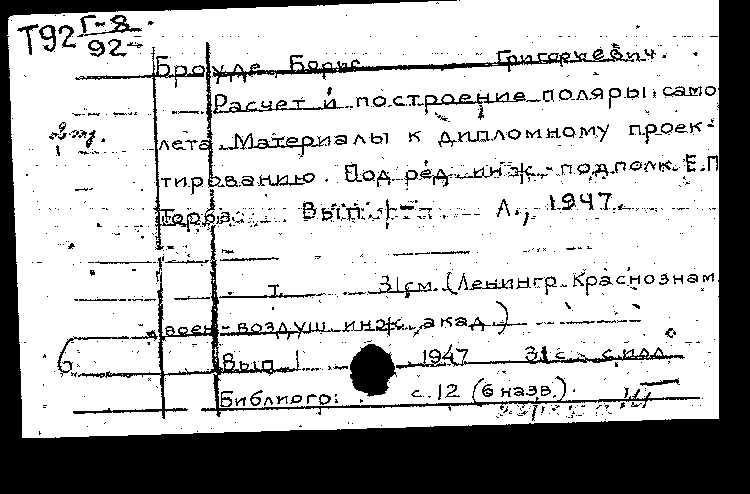 Т92 Г-8
92
Броуде, Борис Григорьевич.
Расчет и построение поляры само-
лета. Материалы к дипломному проек-
тированию. Под ред. инж.-подполк. Е.П.
Торба. Вып. Л., 1947.
т. 31см. (Ленингр. Краснознам.
воен-воздуш. инж. акад.)
Вып 1 1947 31с. с илл.
Библиогр: с.12 (6 назв.).